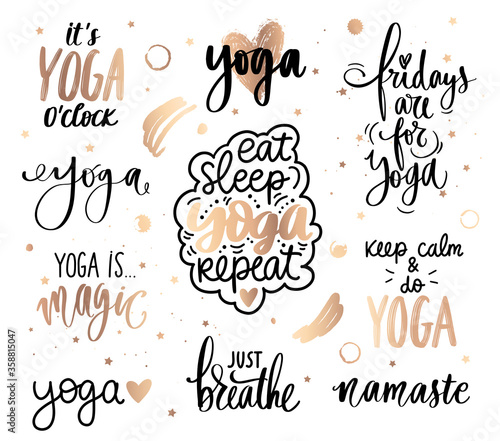 it's
YOGA
O'CLOCK
yoga
fridays
are
for
yoga
yoga
eat
sleep
yoga
repeat
YOGA IS...
magic
KEEP CALM
&
do
YOGA
yoga
JUST
breathe
namaste
Adobe Stock | #358815047